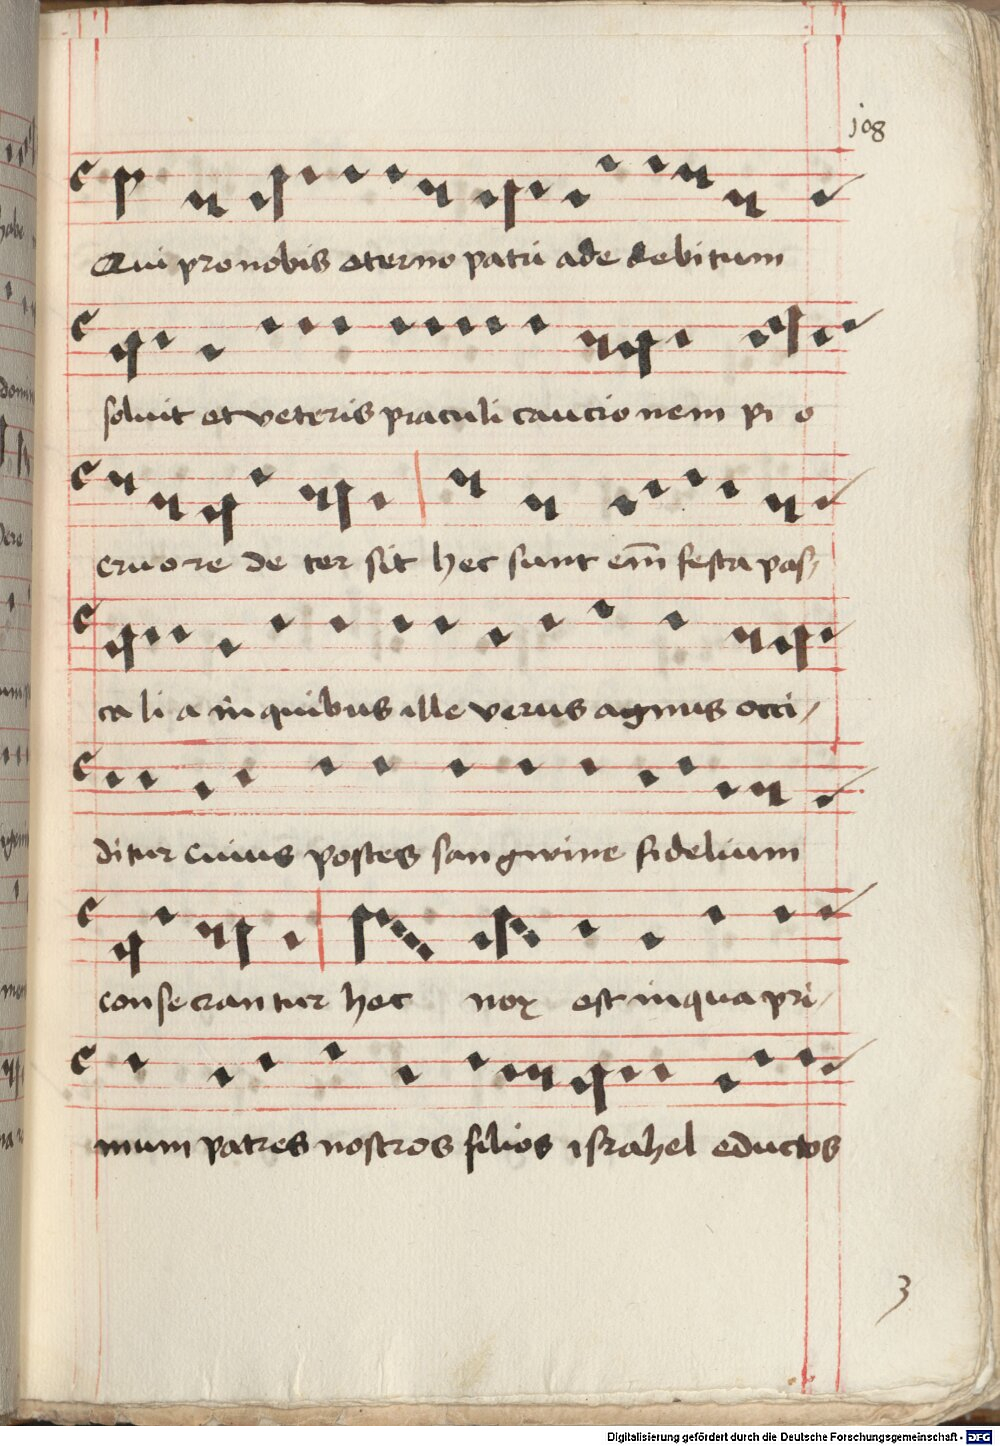 108
Qui pro nobis eterno patri ade debitum
soluit et veteris piaculi caucionem pi o
cruore de ter sit hec sunt em̄ festa pas/
ca li a in quibus ille verus agnus occi/
ditur cuius postes sangwine fidelium
consecrantur hec nox est in qua pri/
mum patres nostros filios israhel eductos
3
Digitalisierung gefördert durch die Deutsche Forschungsgemeinschaft - DFG